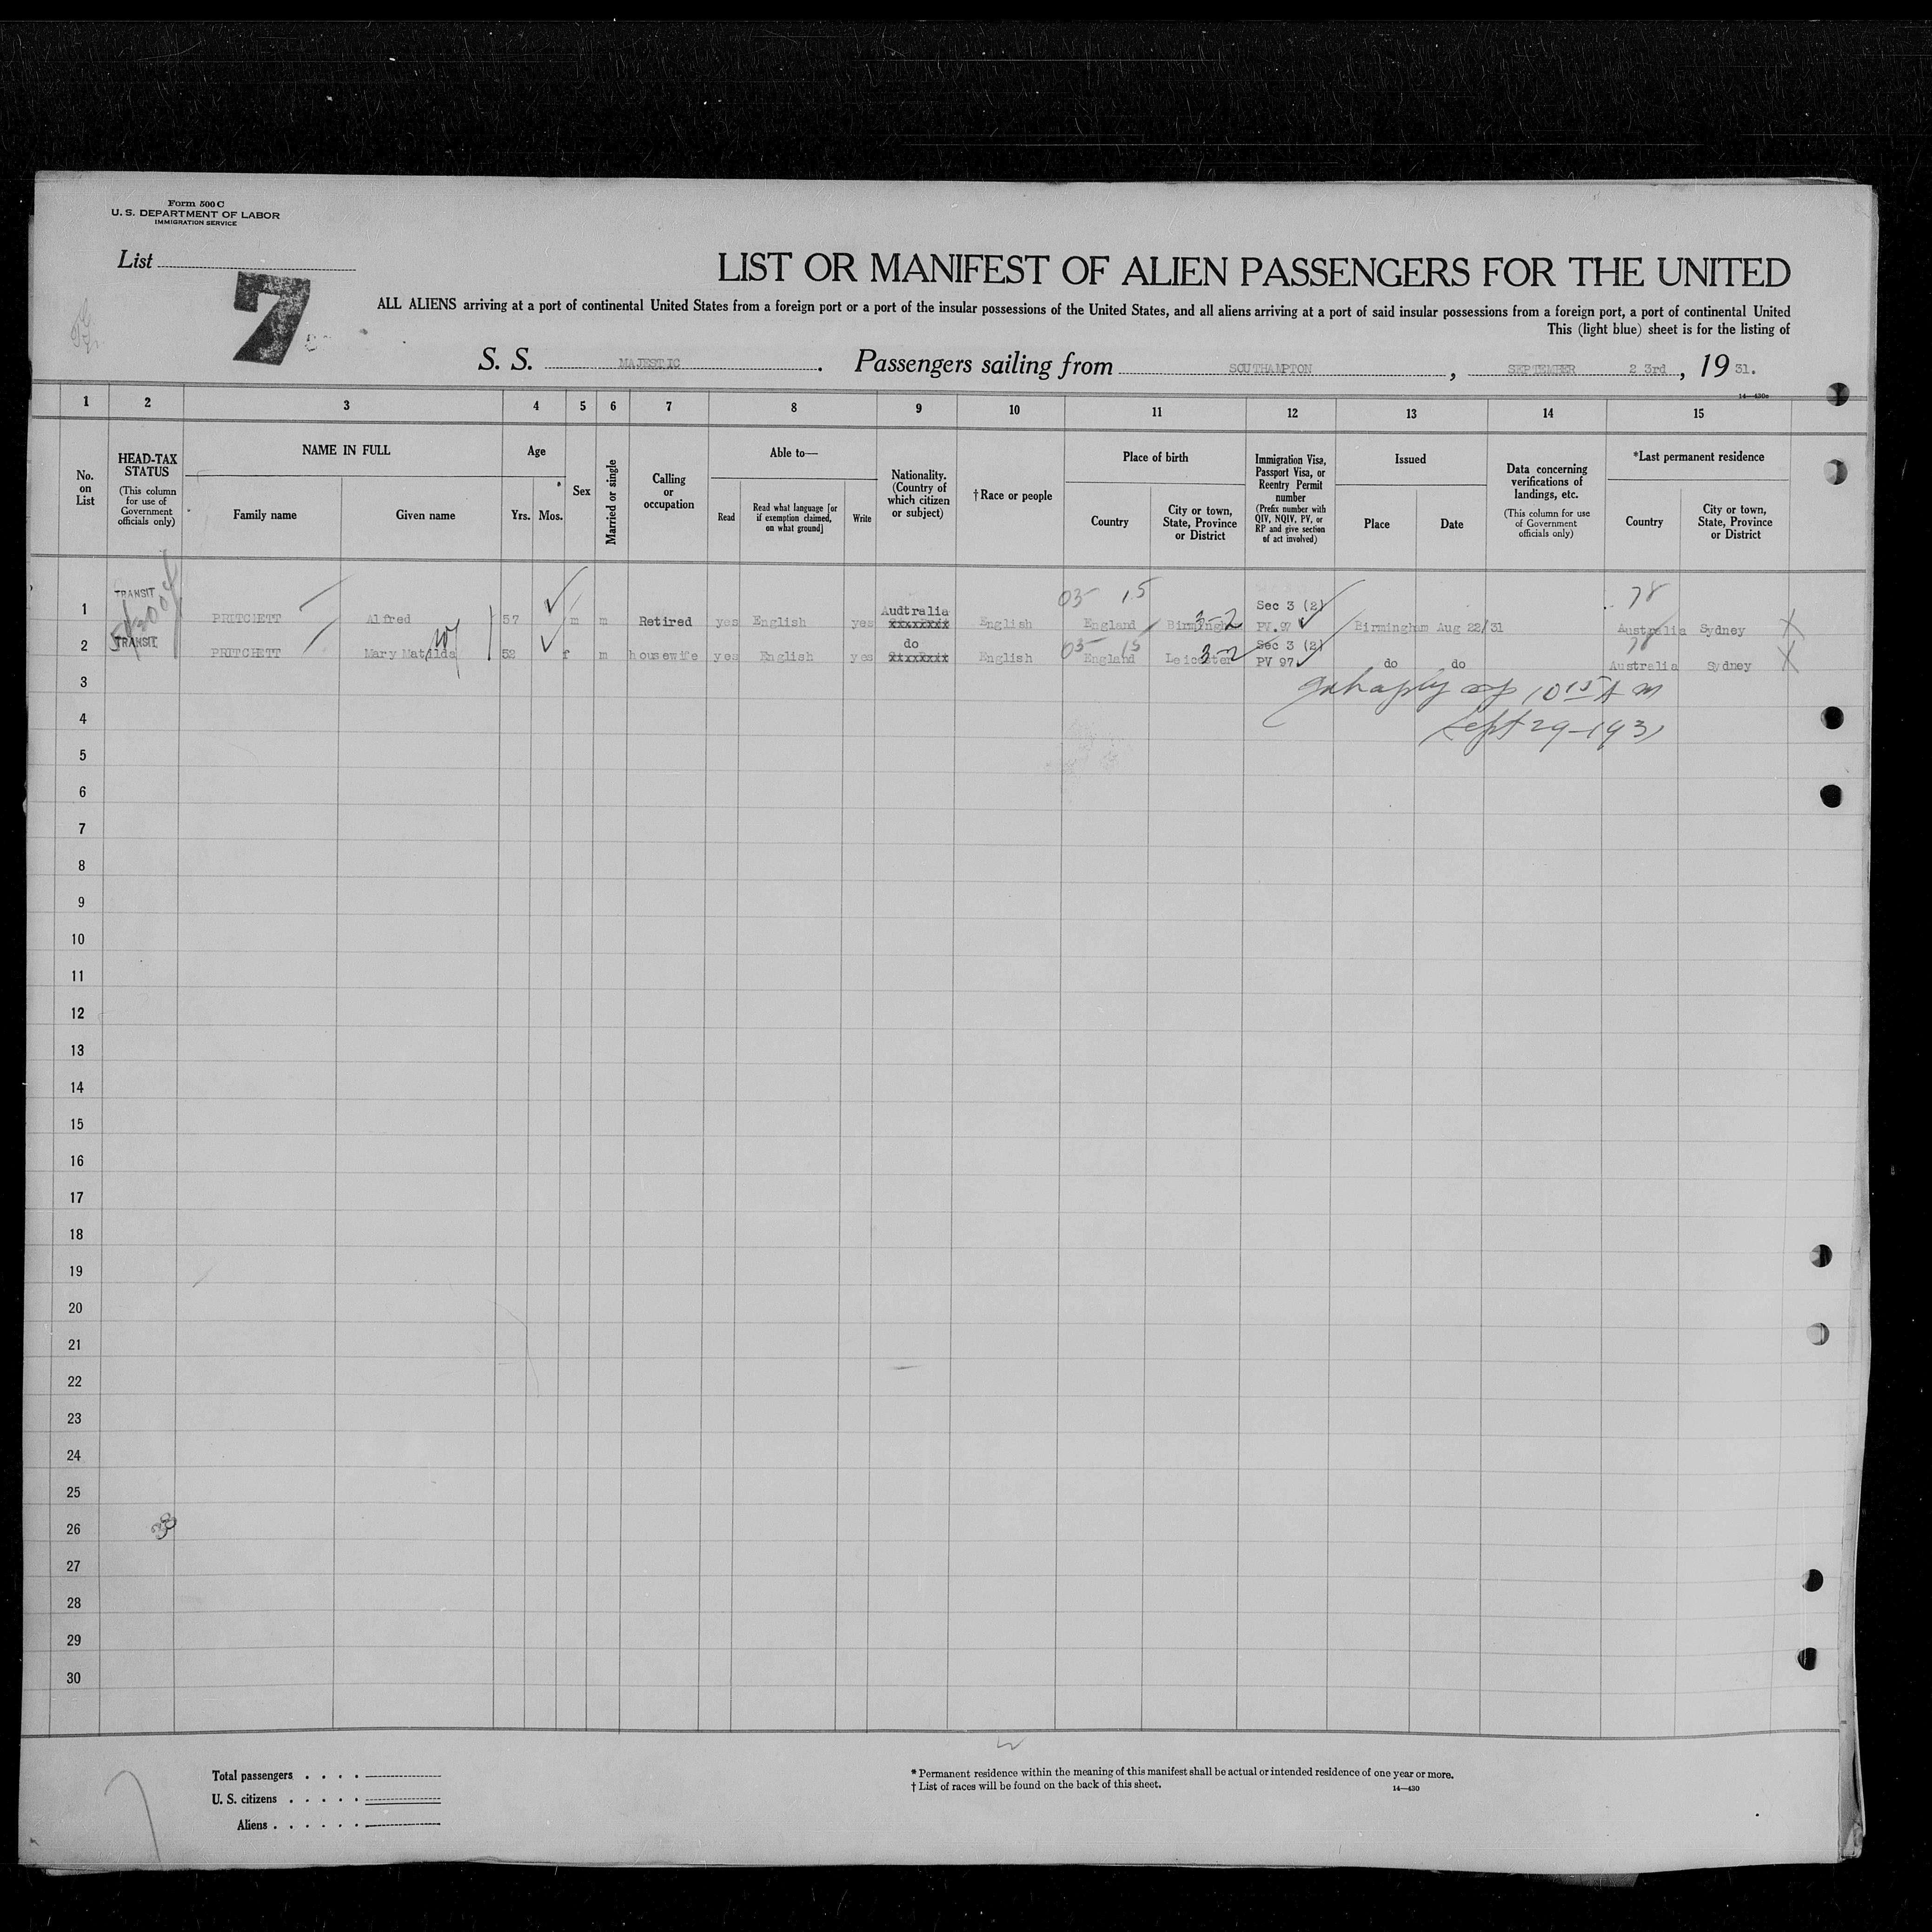 Form 500 C
U. S. DEPARTMENT OF LABOR
IMMIGRATION SERVICE
List
7
LIST OR MANIFEST OF ALIEN PASSENGERS FOR THE UNITED
ALL ALIENS arriving at a port of continental United States from a foreign port or a port of the insular possessions of the United States, and all aliens arriving at a port of said insular possessions from a foreign port, a port of continental United
This (light blue) sheet is for the listing of
S. S. MAJESTIC. Passengers sailing from SOUTHAMPTON, SEPTEMBER 2 3rd, 19 31.
14—430c
1 2 3 4 5 6 7 8 9 10 11 12 13 14 15
No. on List
HEAD-TAX STATUS
(This column for use of Government officials only)
NAME IN FULL
Family name
Given name
Age
Yrs. Mos.
Sex
Married or single
Calling or occupation
Able to—
Read
Read what language [or if exemption claimed, on what ground]
Write
Nationality. (Country of which citizen or subject)
†Race or people
Place of birth
Country
City or town, State, Province or District
Immigration Visa, Passport Visa, or Reentry Permit number
(Prefix number with QIV, NQIV, PV, or RP and give section of act involved)
Issued
Place
Date
Data concerning verifications of landings, etc.
(This column for use of Government officials only)
*Last permanent residence
Country
City or town, State, Province or District
03 15 78
1 TRANSIT PRITCHETT Alfred 57 m m Retired yes English yes Audtralia English England Birmingham 3-2 Sec 3 (2) PV.97 Birmingham Aug 22/31 Australia Sydney X
03 15 78
2 TRANSIT PRITCHETT Mary Matilda 52 f m housewife yes English yes do English England Leicester 3-2 Sec 3 (2) PV 97 do do Australia Sydney X
3
10 15 A M
4
Sept 29-1931
5
6
7
8
9
10
11
12
13
14
15
16
17
18
19
20
21
22
23
24
25
26
27
28
29
30
Total passengers
U. S. citizens
Aliens
* Permanent residence within the meaning of this manifest shall be actual or intended residence of one year or more.
† List of races will be found on the back of this sheet.
14—430